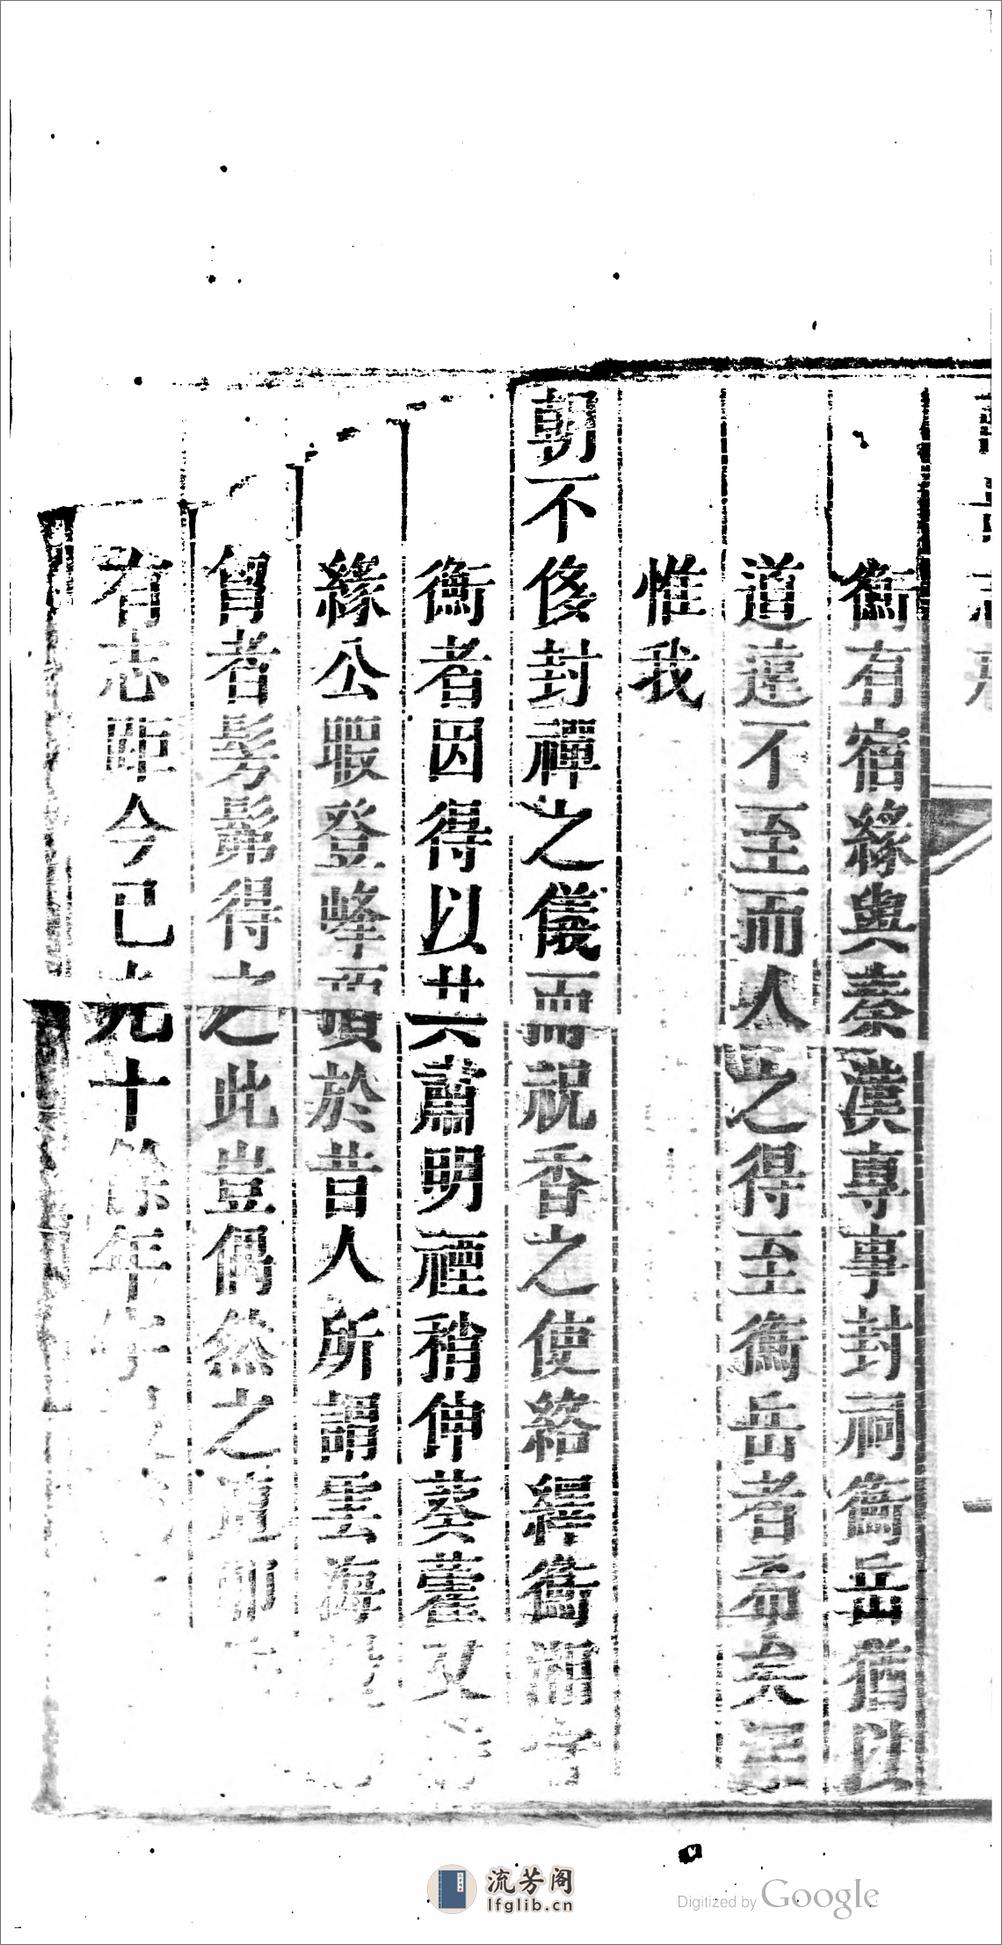 衡有宿緣與秦漢專事封祠衡岳猶以
道遠不至而人之得至衡岳者希矣
惟我
朝不修封禪之儀而祝香之使絡繹衡湘
衡者因得以共肅明禋稍伸葵藿又
緣公暇登峰頂於昔人所謂雲海
胷者髣髴得之此豈偶然之
有志距今已九十餘年
流芳阁
lfglib.cn
Digitized by Google